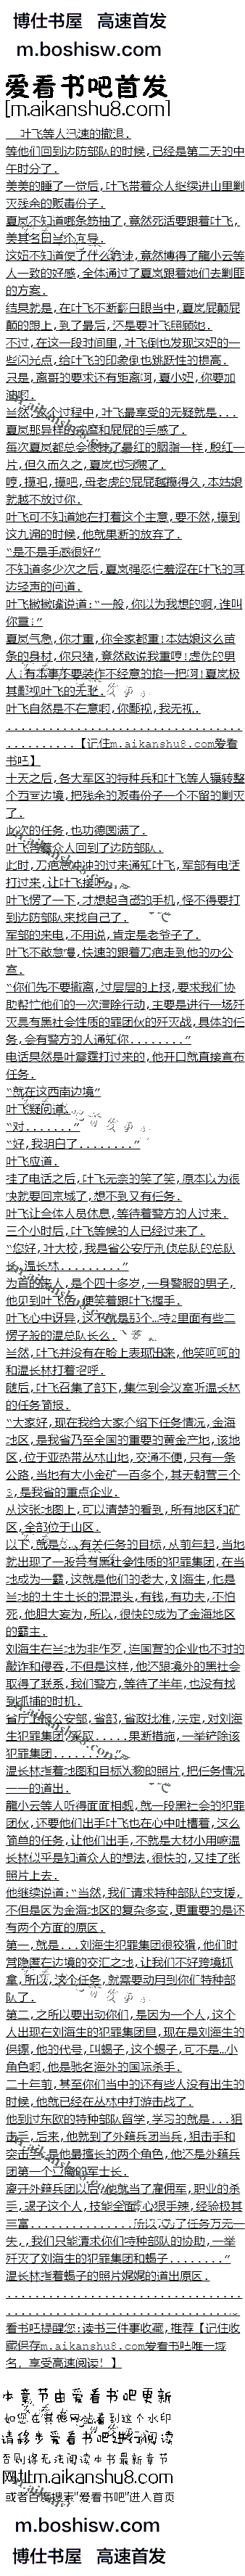 博仕书屋 高速首发
m.boshisw.com
爱看书吧首发
[m.aikanshu8.com]
叶飞等人迅速的撤退.
等他们回到边防部队的时候,已经是第二天的中
午时分了.
美美的睡了一觉后,叶飞带着众人继续进山里剿
灭残余的贩毒份子.
夏岚不知道哪条筋抽了,竟然死活要跟着叶飞,
美其名曰当价
这妞不知道使了什么,竟然博得了龍小云等
人一致的好感,全体通过了夏岚跟着她们去剿匪
的方案.
结果就是,在叶飞不断翻白眼当中,夏岚屁颠屁
颠的跟上,到了最后,还是要叶飞照顾她.
不过,在这一段时间里,叶飞倒也发现这妞的一
些闪光点,给叶飞的印象倒也跳跃性的提高.
只是,离哥的要求还有距离啊,夏小妞,你要加
油啊.
当然,这个过程中,叶飞最享受的无疑就是...
夏岚那异样的和屁屁的手感了.
每次夏岚都总会像打了最红的胭脂一样,殷红一
片,但久而久之,夏岚也习惯了.
哼,摸吧,摸吧,母老虎的屁屁越摸得久,本姑娘
就越不放过你.
叶飞可不知道她在打着这个主意,要不然,摸到
这九遍的时候,他就果断的放弃了.
“是不是手感很好”
不知道多少次之后,夏岚强忍住羞涩在叶飞的耳
边轻声的问道.
叶飞撇撇嘴说道:“一般,你以为我想的啊,谁叫
你重!”
夏岚气急,你才重,你全家都重!本姑娘这么苗
条的身材,你只猪,竟然敢说我重哼!虚伪的男
人!有本事不要装作不经意的掐一把啊!夏岚极
其鄙视叶飞的无耻.
叶飞自然是不在意啦,你鄙视,我无视.
..................................
..........【记住m.aikanshu8.com爱看
书吧】
十天之后,各大军区的特种兵和叶飞等人辗转整
个西南边境,把残余的贩毒份子一个不留的剿灭
了.
此次的任务,也功德圆满了.
叶飞带着众人回到了边防部队.
此时,刀疤急冲冲的过来通知叶飞,军部有电话
打过来,让叶飞接听.
叶飞愣了一下,才想起自己的手机,怪不得要打
到边防部队来找自己了.
军部的来电,不用说,肯定是老爷子了.
叶飞不敢怠慢,快速的跟着刀疤走到他的办公
室.
“你们先不要撤离,过层层的上报,要求我们协
助帮忙他们的一次清除行动,主要是进行一场歼
灭具有黑社会性质的罪团伙的歼灭战,具体的任
务,会有警方的人通知你........”
电话果然是叶震霆打过来的,他开口就直接宣布
任务.
“就在这西南边境”
叶飞疑问道.
“对.......”
“好,我明白了........”
叶飞应道.
挂了电话之后,叶飞无奈的笑了笑,原本以为很
快就要回京城了,想不到又有任务.
叶飞让全体人员休息,等待着警方的人过来.
三个小时后,叶飞等候的人已经过来了.
“您好,叶大校,我是省公安厅刑侦总队的总队
长,温长林.........”
为首的军人,是个四十多岁,一身警服的男子,
他见到叶飞后,便笑着跟叶飞握手.
叶飞心中讶异,这不就是那个...特2里面有些二
愣子般的温总队长么.
当然,叶飞并没有在脸上表现出来,他笑呵呵的
和温长林打着招呼.
随后,叶飞召集了部下,集体到会议室听温长林
的任务简报.
“大家好,现在我给大家介绍下任务情况,金海
地区,是我省乃至全国的重要的黄金产地,该地
区,位于亚热带丛林山地,交通不便,只有一条
公路,当地有大小金矿一百多个,其天朝营三个
3,是我省的重点企业.
从这张地图上,可以清楚的看到,所有地区和矿
区,全部位于山区.
以下,就是...有关任务的目标,从前年起,当地
就出现了一股具有黑社会性质的犯罪集团,在当
地成为一霸,这就是他们的老大,刘海生,他是
当地的土生土长的混混头,有钱,有功夫,不怕
死,他胆大妄为,所以,很快的成为了金海地区
的霸主.
刘海生在当地为非作歹,连国营的企业也不时的
敲诈和侵吞,不但是这样,他还跟境外的黑社会
取得了联系,我们警方,等待了半年,也没有找
到抓捕的时机.
省厅上报公安部,省部,省政批准,决定,对刘海
生犯罪集团,采取.....果断措施,一举铲除该
犯罪集团........”
温长林指着地图和目标人物的照片,把任务情况
一一的道出.
龍小云等人听得面面相觑,就一段黑社会的犯罪
团伙,还要他们出手叶飞也在心中吐槽着,这么
简单的任务,让他们出手,不就是大材小用嘛温
长林似乎是知道众人的想法,很快的,又挂了张
照片上去.
他继续说道:“当然,我们请求特种部队的支援,
不但是因为金海地区的复杂多变,更重要的是还
有两个方面的原因.
第一,就是...刘海生犯罪集团很狡猾,他们时
常隐匿在边境的交汇之地,让我们不好跨境抓
拿,所以,这个任务,就需要动用到你们特种部
队了.
第二,之所以要出动你们,是因为一个人,这个
人出现在刘海生的犯罪集团里,现在是刘海生的
保镖,他的代号,叫蝎子,这个蝎子,可不是...小
角色啊,他是驰名海外的国际杀手.
二十年前,甚至你们当中的还有些人没有出生的
时候,他就已经在丛林中打游击战了.
他到过东欧的特种部队留学,学习的就是...狙
击手,后来,他就到了外籍军团当兵,狙击手和
突击手是他最擅长的两个角色,他还是外籍兵
团第一个亚裔的军士长.
离开外籍兵团以后,他就当了雇佣军,职业的杀
手,蝎子这个人,技能全面,心狠手辣,经验极其
丰富.............所以为了任务万无一
失,,我们只能请求你们特种部队的协助,一举
歼灭了刘海生的犯罪集团和蝎子........”
温长林指着蝎子的照片娓娓的道出原因.
..................................
看书吧提醒您:读书三件事收藏,推荐【记住收
藏保存m.aikanshu8.com爱看书吧唯一域
名,享受高速阅读!】
本章节由爱看书吧更新
如您在其他网站看到这个水印
请移步爱看书吧进行阅读
否则将无法阅读本书最新章节
网址m.aikanshu8.com
或者百度搜索"爱看书吧"进入首页
m.boshisw.com
博仕书屋 高速首发